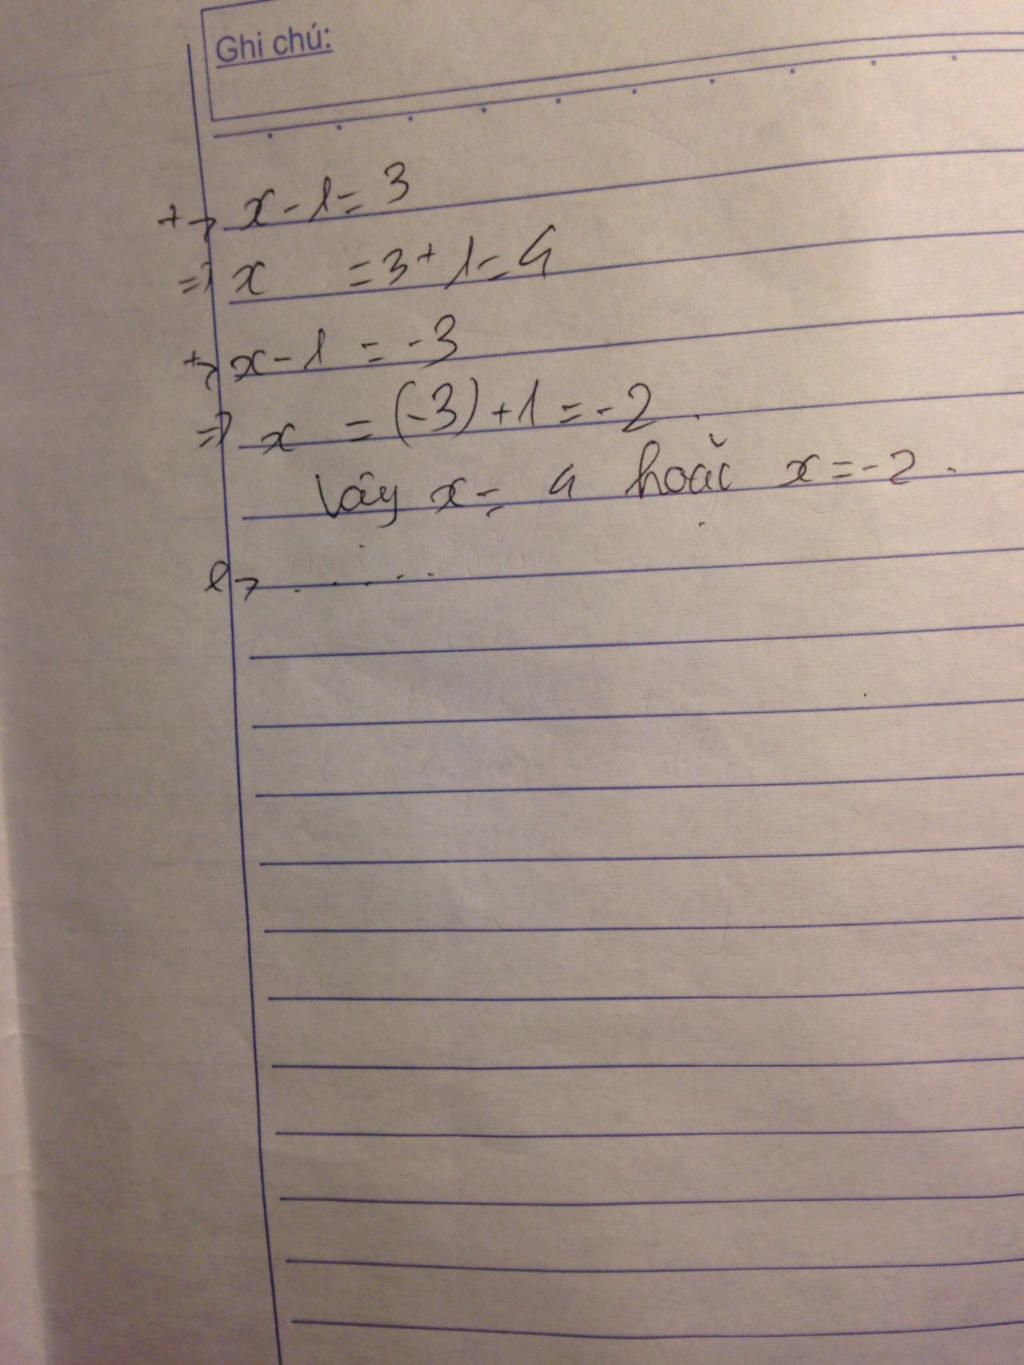 Ghi chú:
+> x - 1 = 3
=> x = 3 + 1 = 4
+> x - 1 = -3
=> x = (-3) + 1 = -2.
Vậy x = 4 hoặc x = -2.
e> . . . . . .